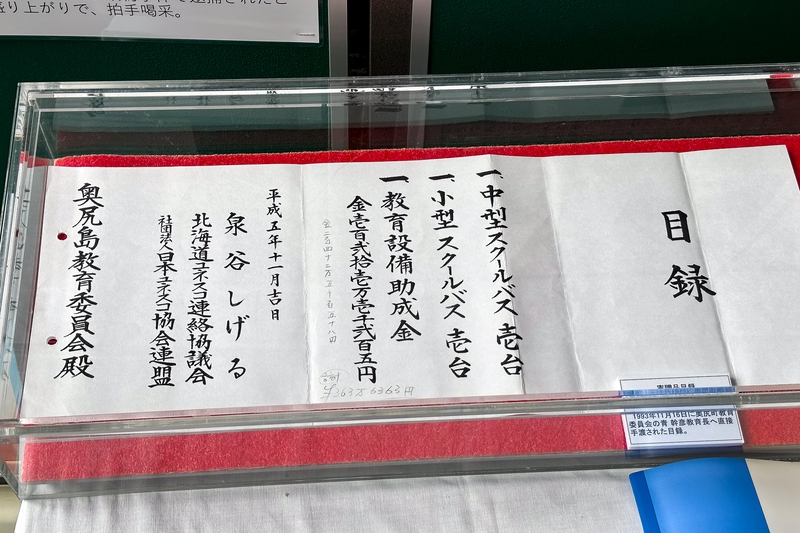 盛り上がりで、拍手喝采。
目録
一、中型スクールバス 壱台
一、小型スクールバス 壱台
一、教育設備助成金
金壱百弐拾壱万壱千弐百五円
平成五年十一月吉日
泉谷しげる
北海道ユネスコ連絡協議会
社団法人日本ユネスコ協会連盟
奥尻島教育委員会殿
1993年11月16日に奥尻町教育
委員会の青 幹彦教育長へ直接
手渡された目録。